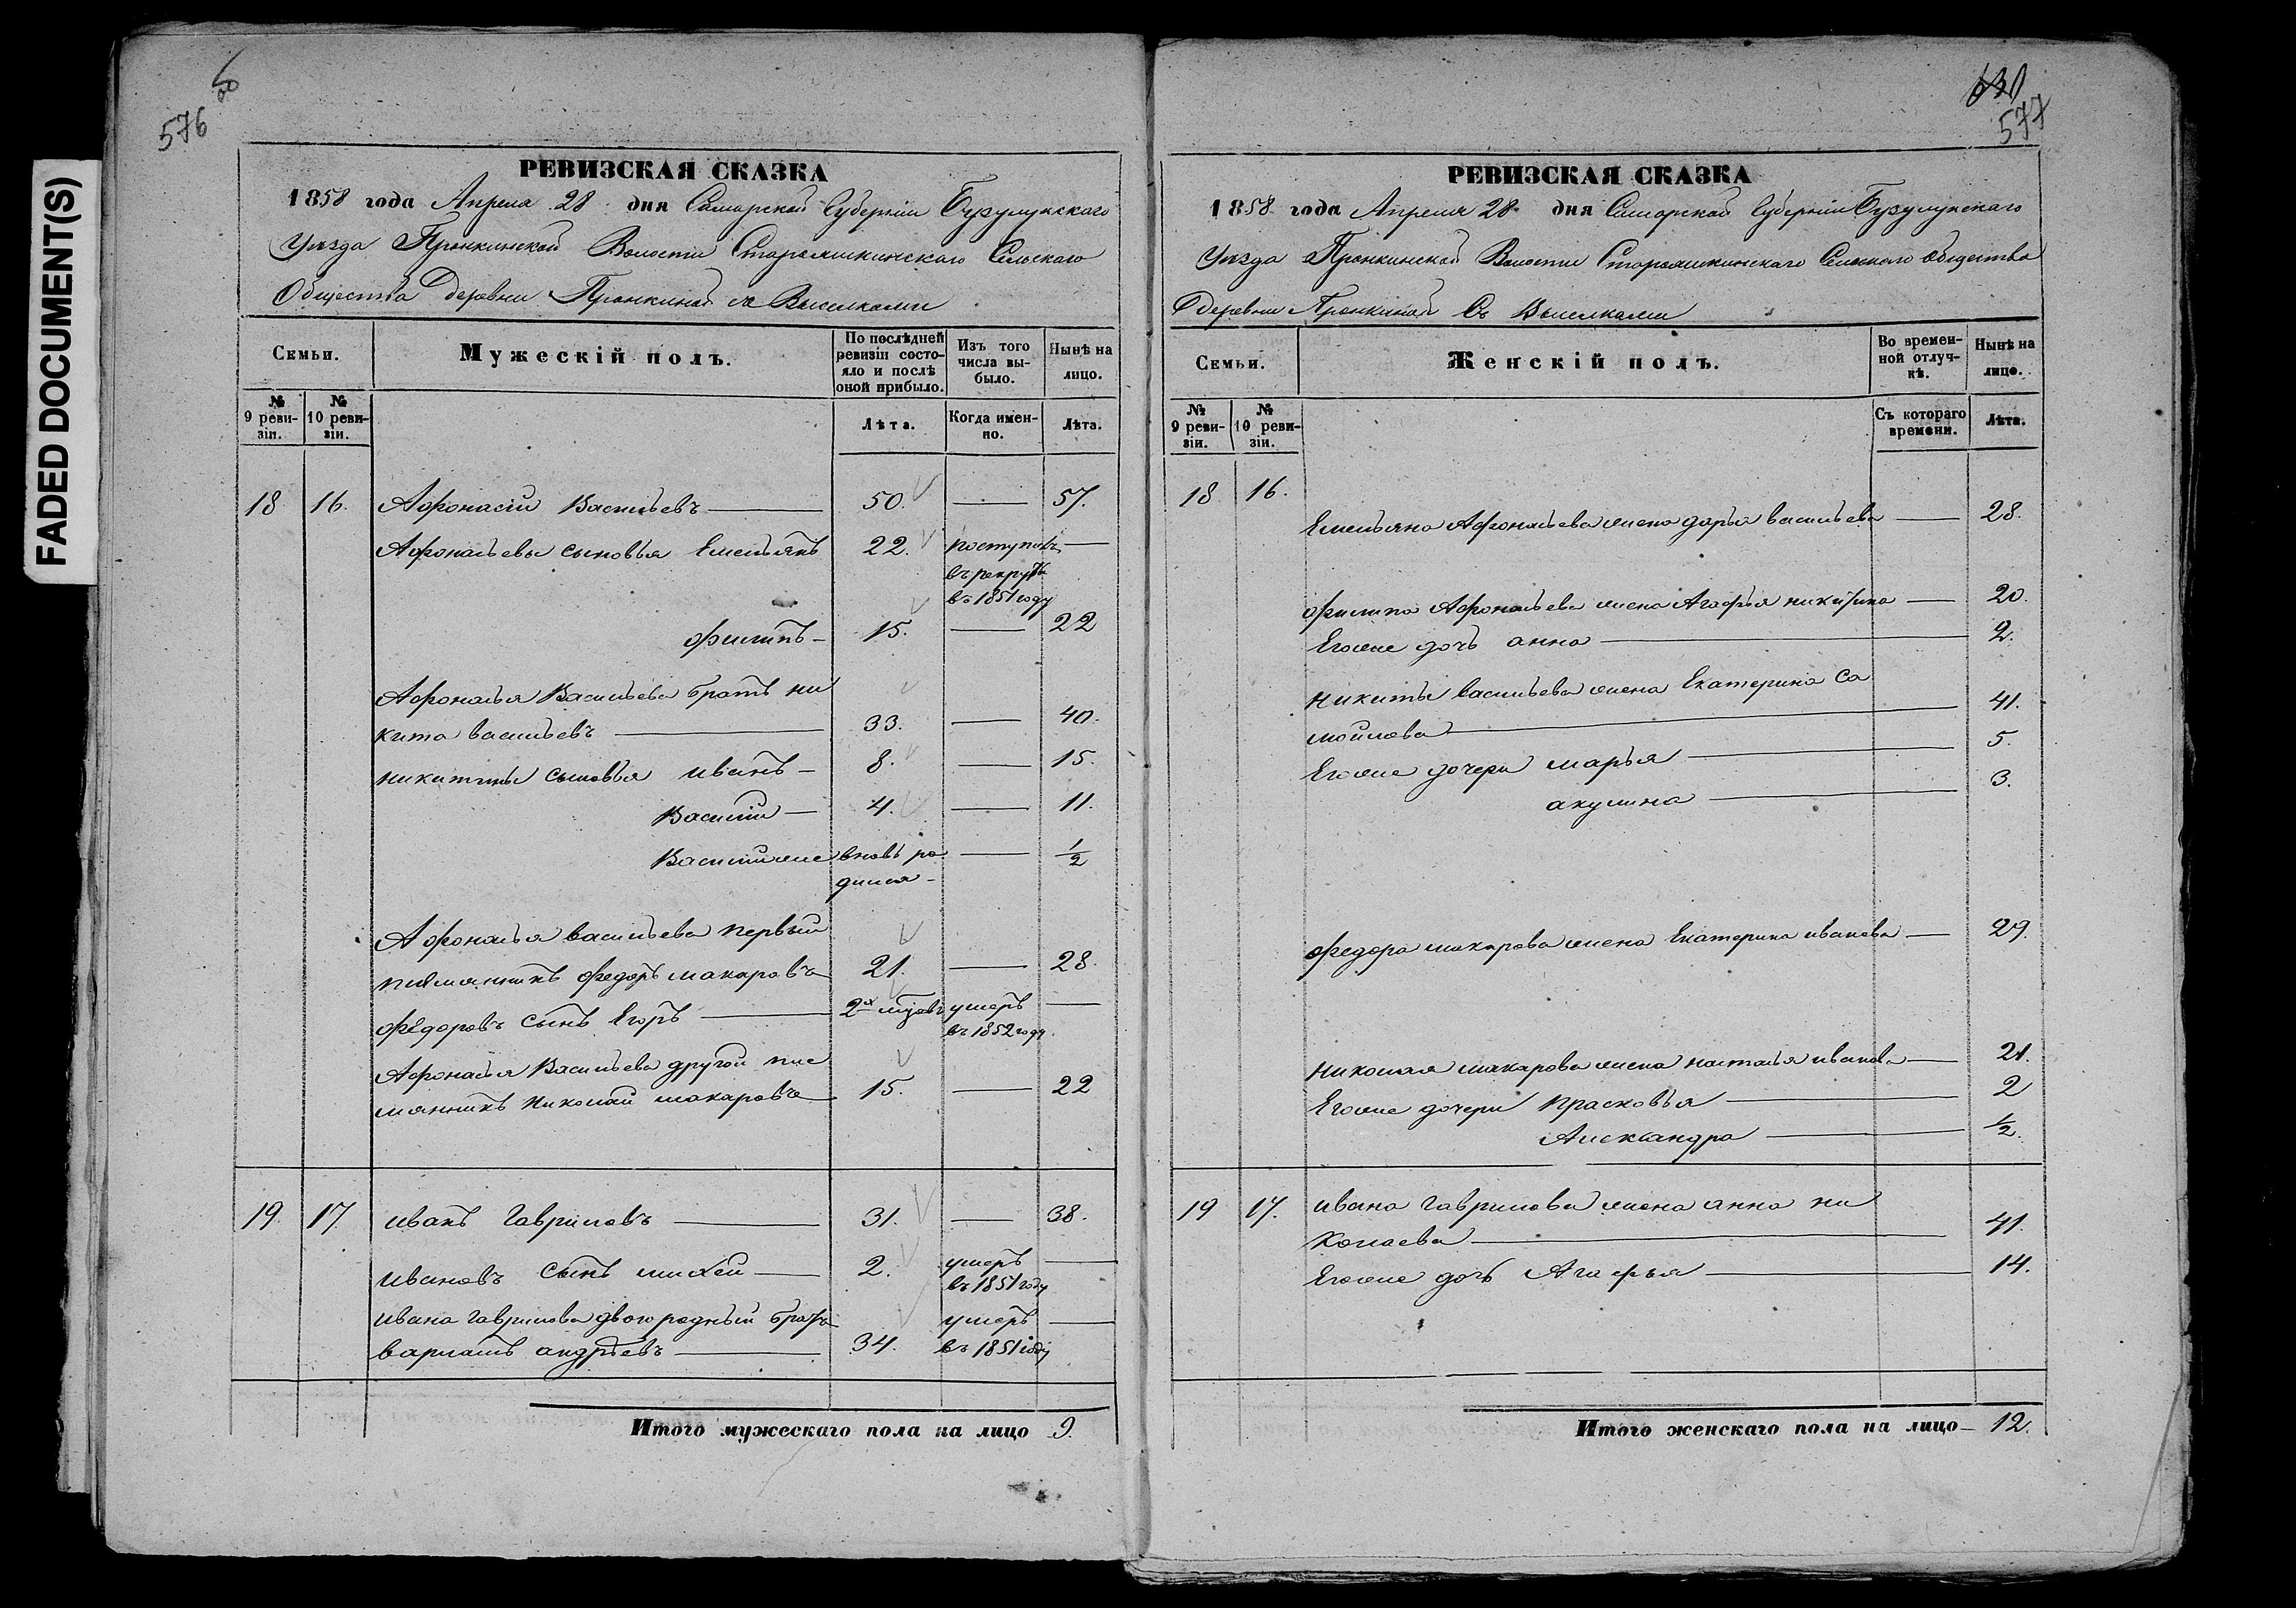 FADED DOCUMENT(S)
576
РЕВИЗСКАЯ СКАЗКА
1858 года Апреля 28 дня Самарской Губернии Бузулукскаго
Уезда Пронкинской Волости Старояшкинскаго Сельскаго
Общества деревни Пронкиной съ Выселками
Семьи. Мужескій полъ. По послѣдней ревизіи состояло и послѣ оной прибыло. Изъ того числа выбыло. Нынѣ на лицо.
№ 9 ревизіи. № 10 ревизіи. Лѣта. Когда именно. Лѣта.
18 16. Афонасій Васильевъ 50. 57.
Афонасьевы сыновья Емельянъ 22. поступилъ
въ рекруты
въ 1851 году
Филипъ 15. 22
Афонасья Васильева братъ Ни
кита Васильевъ 33. 40.
Никитины сыновья Иванъ 8. 15.
Василій 4. 11.
Василійже вновь ро 1/2
дился
Афонасья Васильева первый
племянникъ Федоръ Макаровъ 21. 28.
Федоровъ сынъ Егоръ 2х умеръ
въ 1852 году
Афонасья Васильева другой пле
мянникъ Николай Макаровъ 15. 22
19. 17. Иванъ Гавриловъ 31. 38.
Ивановъ сынъ Михей 2. умеръ
въ 1851 году
Ивана Гаврилова двоюродный братъ умеръ
Варламъ Андреевъ 34. въ 1851 году
Итого мужескаго пола на лицо 9.
577
РЕВИЗСКАЯ СКАЗКА
1858 года Апреля 28 дня Самарской Губернии Бузулукскаго
Уезда Пронкинской Волости Старояшкинскаго Сельскаго Общества
деревни Пронкиной Съ Выселками
Семьи. Женскій полъ. Во временной отлучкѣ. Нынѣ на лицо.
№ 9 ревизіи. № 10 ревизіи. Съ котораго времени. Лѣта.
18 16.
Емельяна Афонасьева жена Дарья Васильева 28.
Филипа Афонасьева жена Агафья Никитина 20.
Егоже дочь Анна 2.
Никиты Васильева жена Екатерина Са
мойлова 41.
Егоже дочери Марья 5.
Акулина 3.
Федора Макарова жена Екатерина Иванова 29.
Николая Макарова жена Наталья Иванова 21.
Егоже дочери Прасковья 2
Александра 1/2.
19 17. Ивана Гаврилова жена Анна Ни
колаева 41.
Егоже дочь Агафья 14.
Итого женскаго пола на лицо 12.